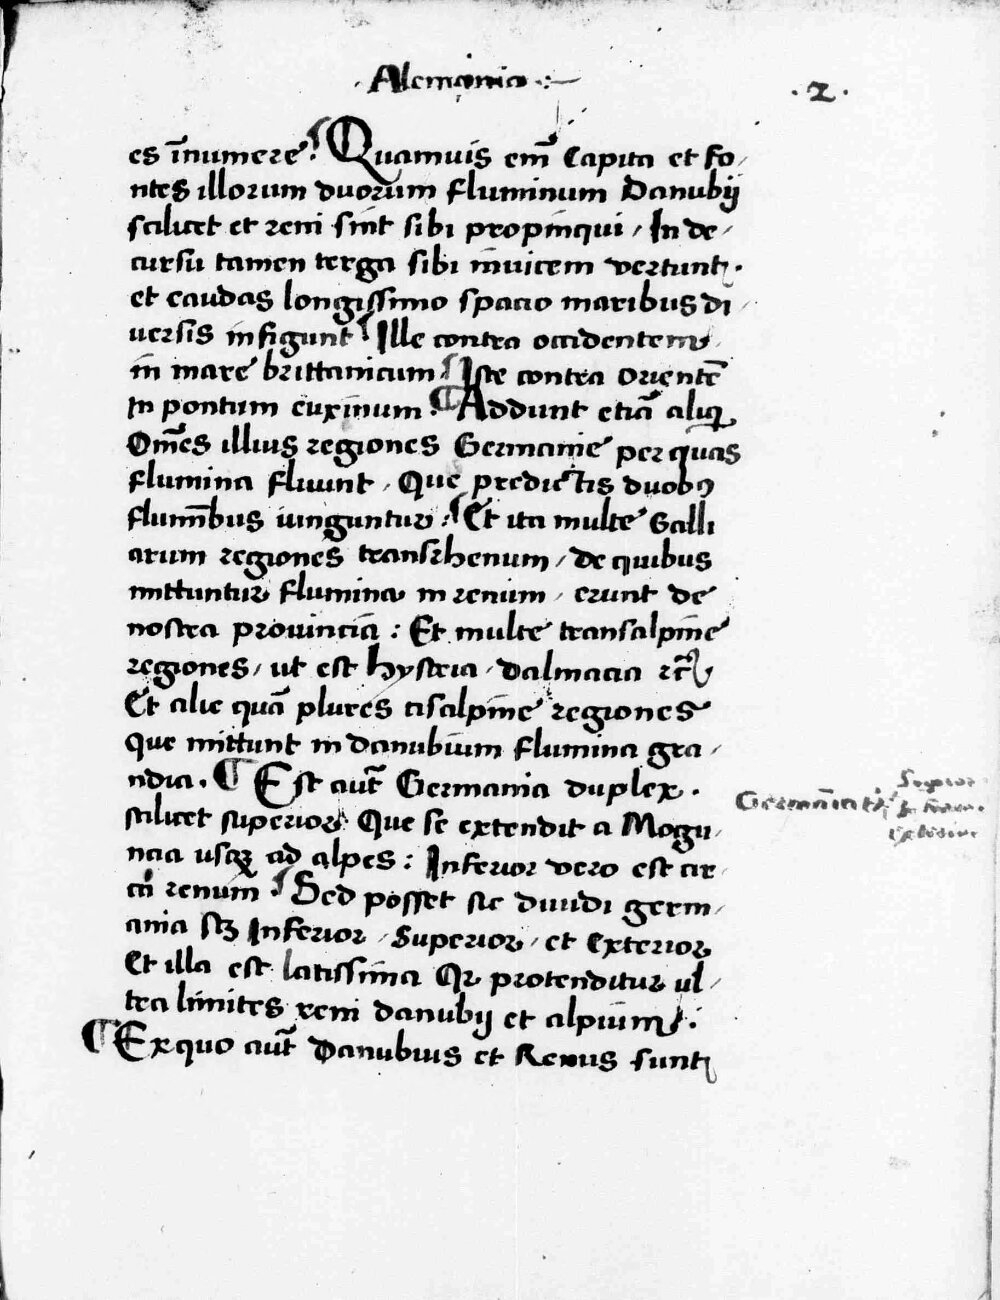 Alemania
.2.
es īnumere. Quamuis em̄ Capita et fo/
ntes illorum duorum fluminum Danubij
scilicet et reni sint sibi propinqui / In de/
cursu tamen terga sibi inuicem vertunt.
et caudas longissimo spacio maribus di/
uersis infigunt Ille contra occidentem
in mare brittanicum Iste contra Orientē
In pontum euxinum. ¶ Addunt etiā aliq
Om̄es illius regiones Germanie per quas
flumina fluunt / Que predictis duobꝰ
flumībus iunguntur: Et ita multe Galli
arum regiones transrhenum / de quibus
mittuntur flumina in renum / erunt de
nostra prouincia: Et multe transalpine
regiones / ut est hystria / dalmacia ꝛc̄
Et alie quā plures cisalpine regiones
que mittunt in danubium flumina gra/
ndia. ¶ Est aut̄ Germania duplex.
scilicet superior Que se extendit a Mogu/
ncia usqꝫ ad alpes: Inferior vero est cir/
cū renum. Sed posset sic diuidi germ/
ania scꝫ Inferior / Superior / et Exterior
Et illa est latissima Qr protenditur ul/
tra limites reni danubij et alpium.
¶ Exquo aut̄ Danubius et Renus sunt
Germania